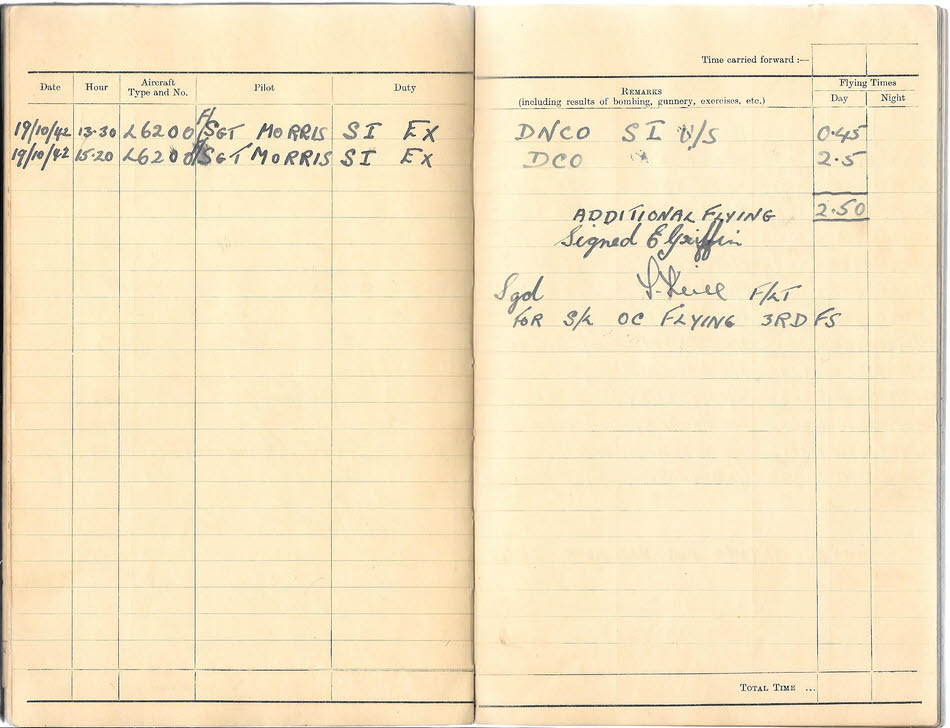 Time carried forward :—
Date Hour Aircraft Type and No. Pilot Duty
Remarks (including results of bombing, gunnery, exercises, etc.)
Flying Times
Day Night
19/10/42 13.30 L6200 F/SGT MORRIS SI EX DNCO SI U/S 0.45
19/10/42 15.20 L6200 F/SGT MORRIS SI EX DCO 2.5
ADDITIONAL FLYING 2.50
Signed E Griffin
Sgd F/LT
FOR S/L OC FLYING 3RD FS
Total Time ...